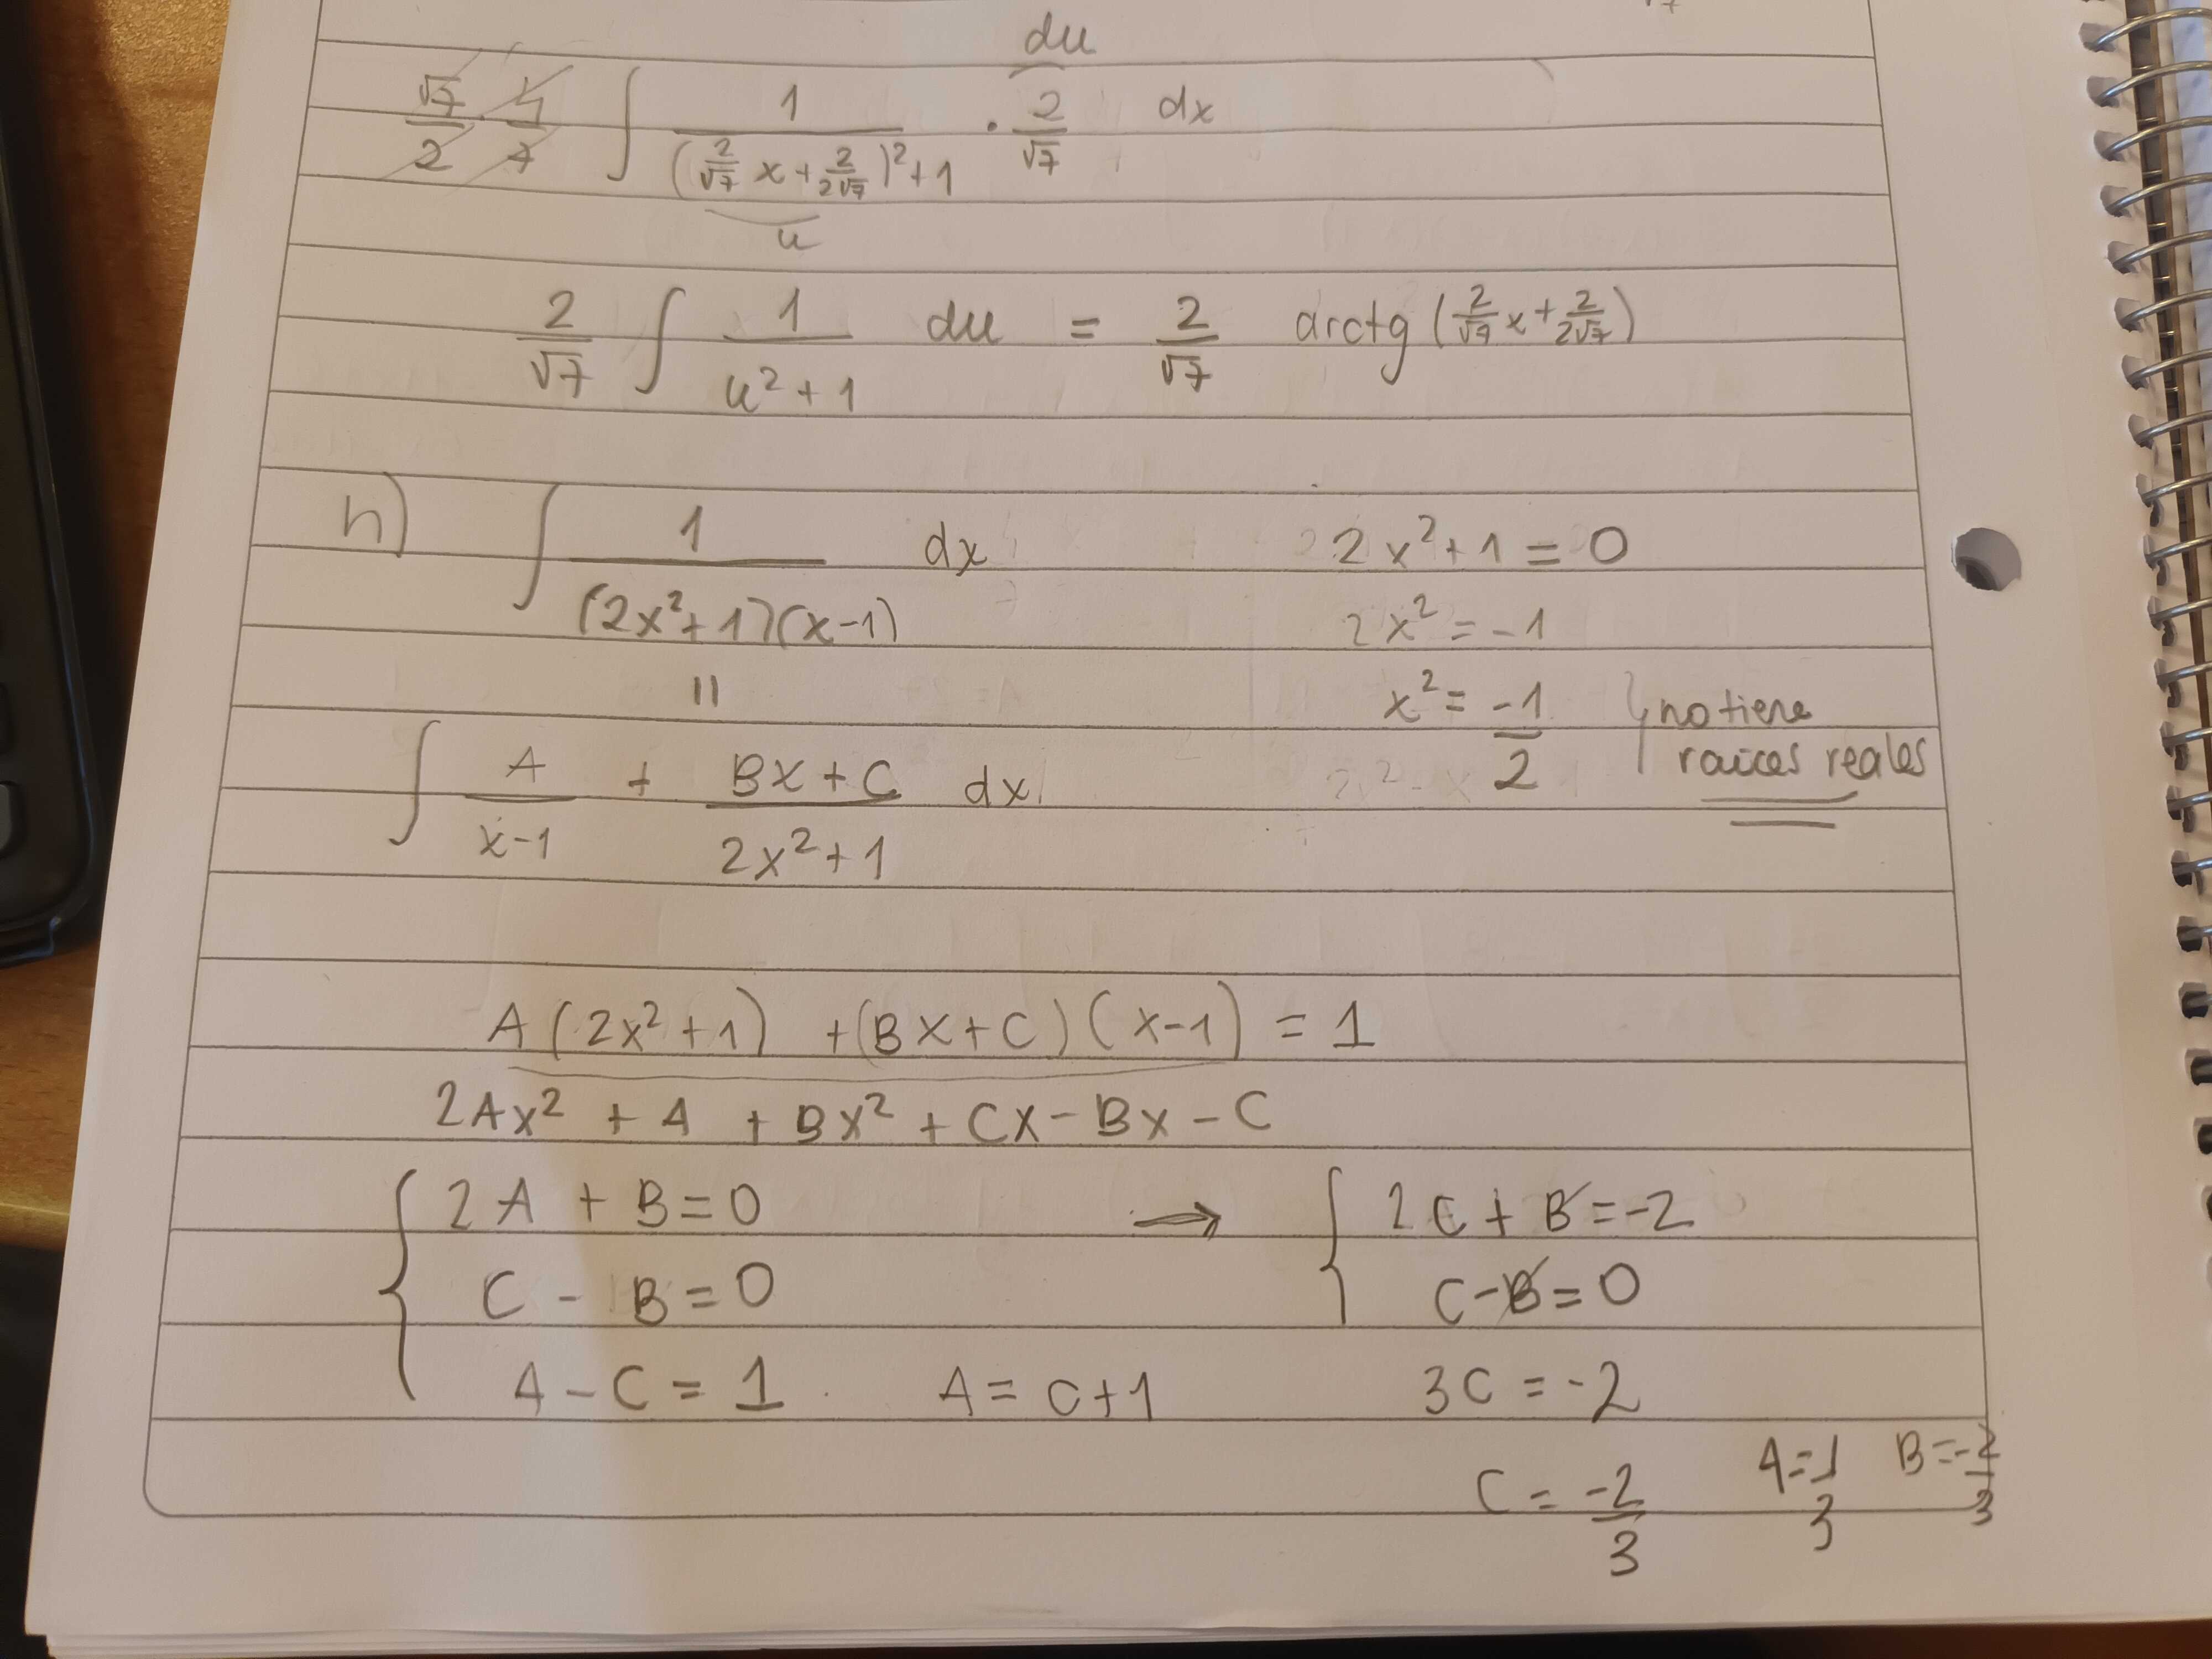 du
√7/2 · 4/7 ∫ 1/((2/√7 x + 2/2√7)² + 1) · 2/√7 dx
u
2/√7 ∫ 1/(u² + 1) du = 2/√7 arctg (2/√7 x + 2/2√7)
h) ∫ 1/((2x²+1)(x-1)) dx
2x² + 1 = 0
2x² = -1
x² = -1/2 } no tiene raices reales
||
∫ A/(x-1) + (Bx + C)/(2x² + 1) dx
A (2x² + 1) + (Bx + C) (x-1) = 1
2Ax² + A + Bx² + Cx - Bx - C
{ 2A + B = 0 → { 2C + B = -2
C - B = 0 C - B = 0
A - C = 1 A = C+1 3C = -2
C = -2/3 A = 1/3 B = -2/3